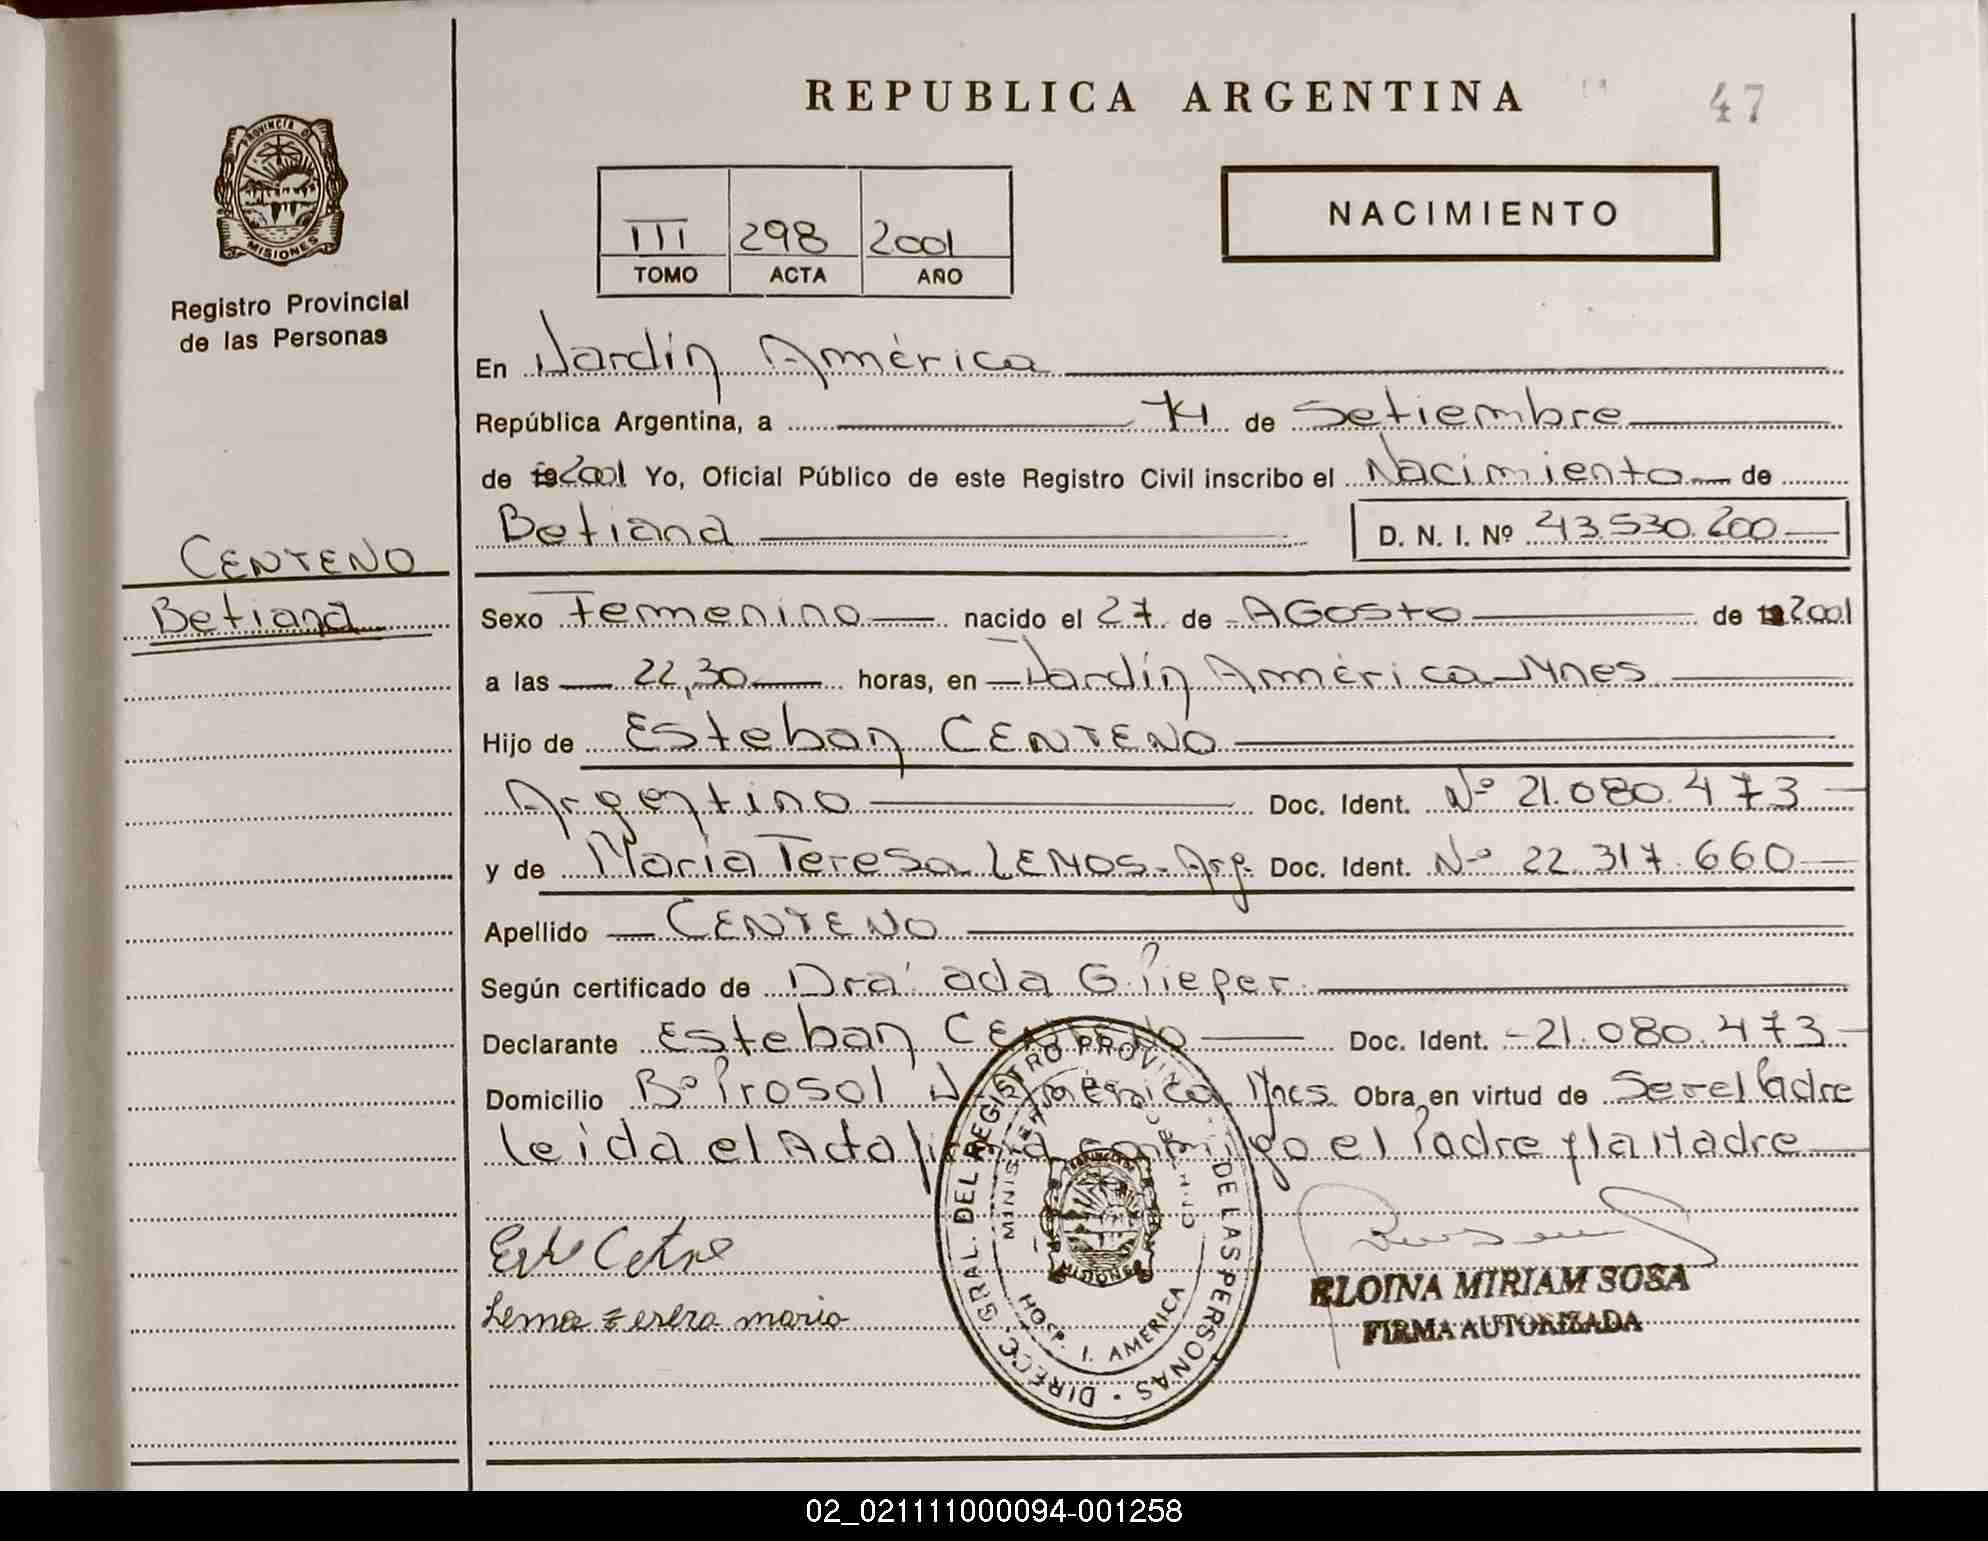 REPUBLICA ARGENTINA
47
PROVINCIA D
MISIONES
Registro Provincial
de las Personas
III 298 2001
TOMO ACTA AÑO
NACIMIENTO
En Jardín América
República Argentina, a de Setiembre
de 2001 Yo, Oficial Público de este Registro Civil inscribo el Nacimiento de
Betiana D. N. I. Nº 43.530.200
CENTENO
Betiana
Sexo Femenino nacido el 27 de AGosto de 2001
a las 22,30 horas, en Jardín América Mnes
Hijo de Esteban CENTENO
Argentino Doc. Ident. Nº 21.080.473
y de María Teresa LEMOS - Arg. Doc. Ident. Nº 22.317.660
Apellido CENTENO
Según certificado de Dra ada G. Pieper
Declarante Esteban CENTENO Doc. Ident. 21.080.473
Domicilio Bº Prosol J. América Mnes Obra en virtud de Ser el Padre
leida el Acta firma conmigo el Padre y la Madre
DIRECC. GRAL. DEL REGISTRO PROVINC DE LAS PERSONAS
HOSP. J. AMERICA
MISIONES
teresa maria
ELOINA MIRIAM SOSA
FIRMA AUTORIZADA
02_021111000094-001258